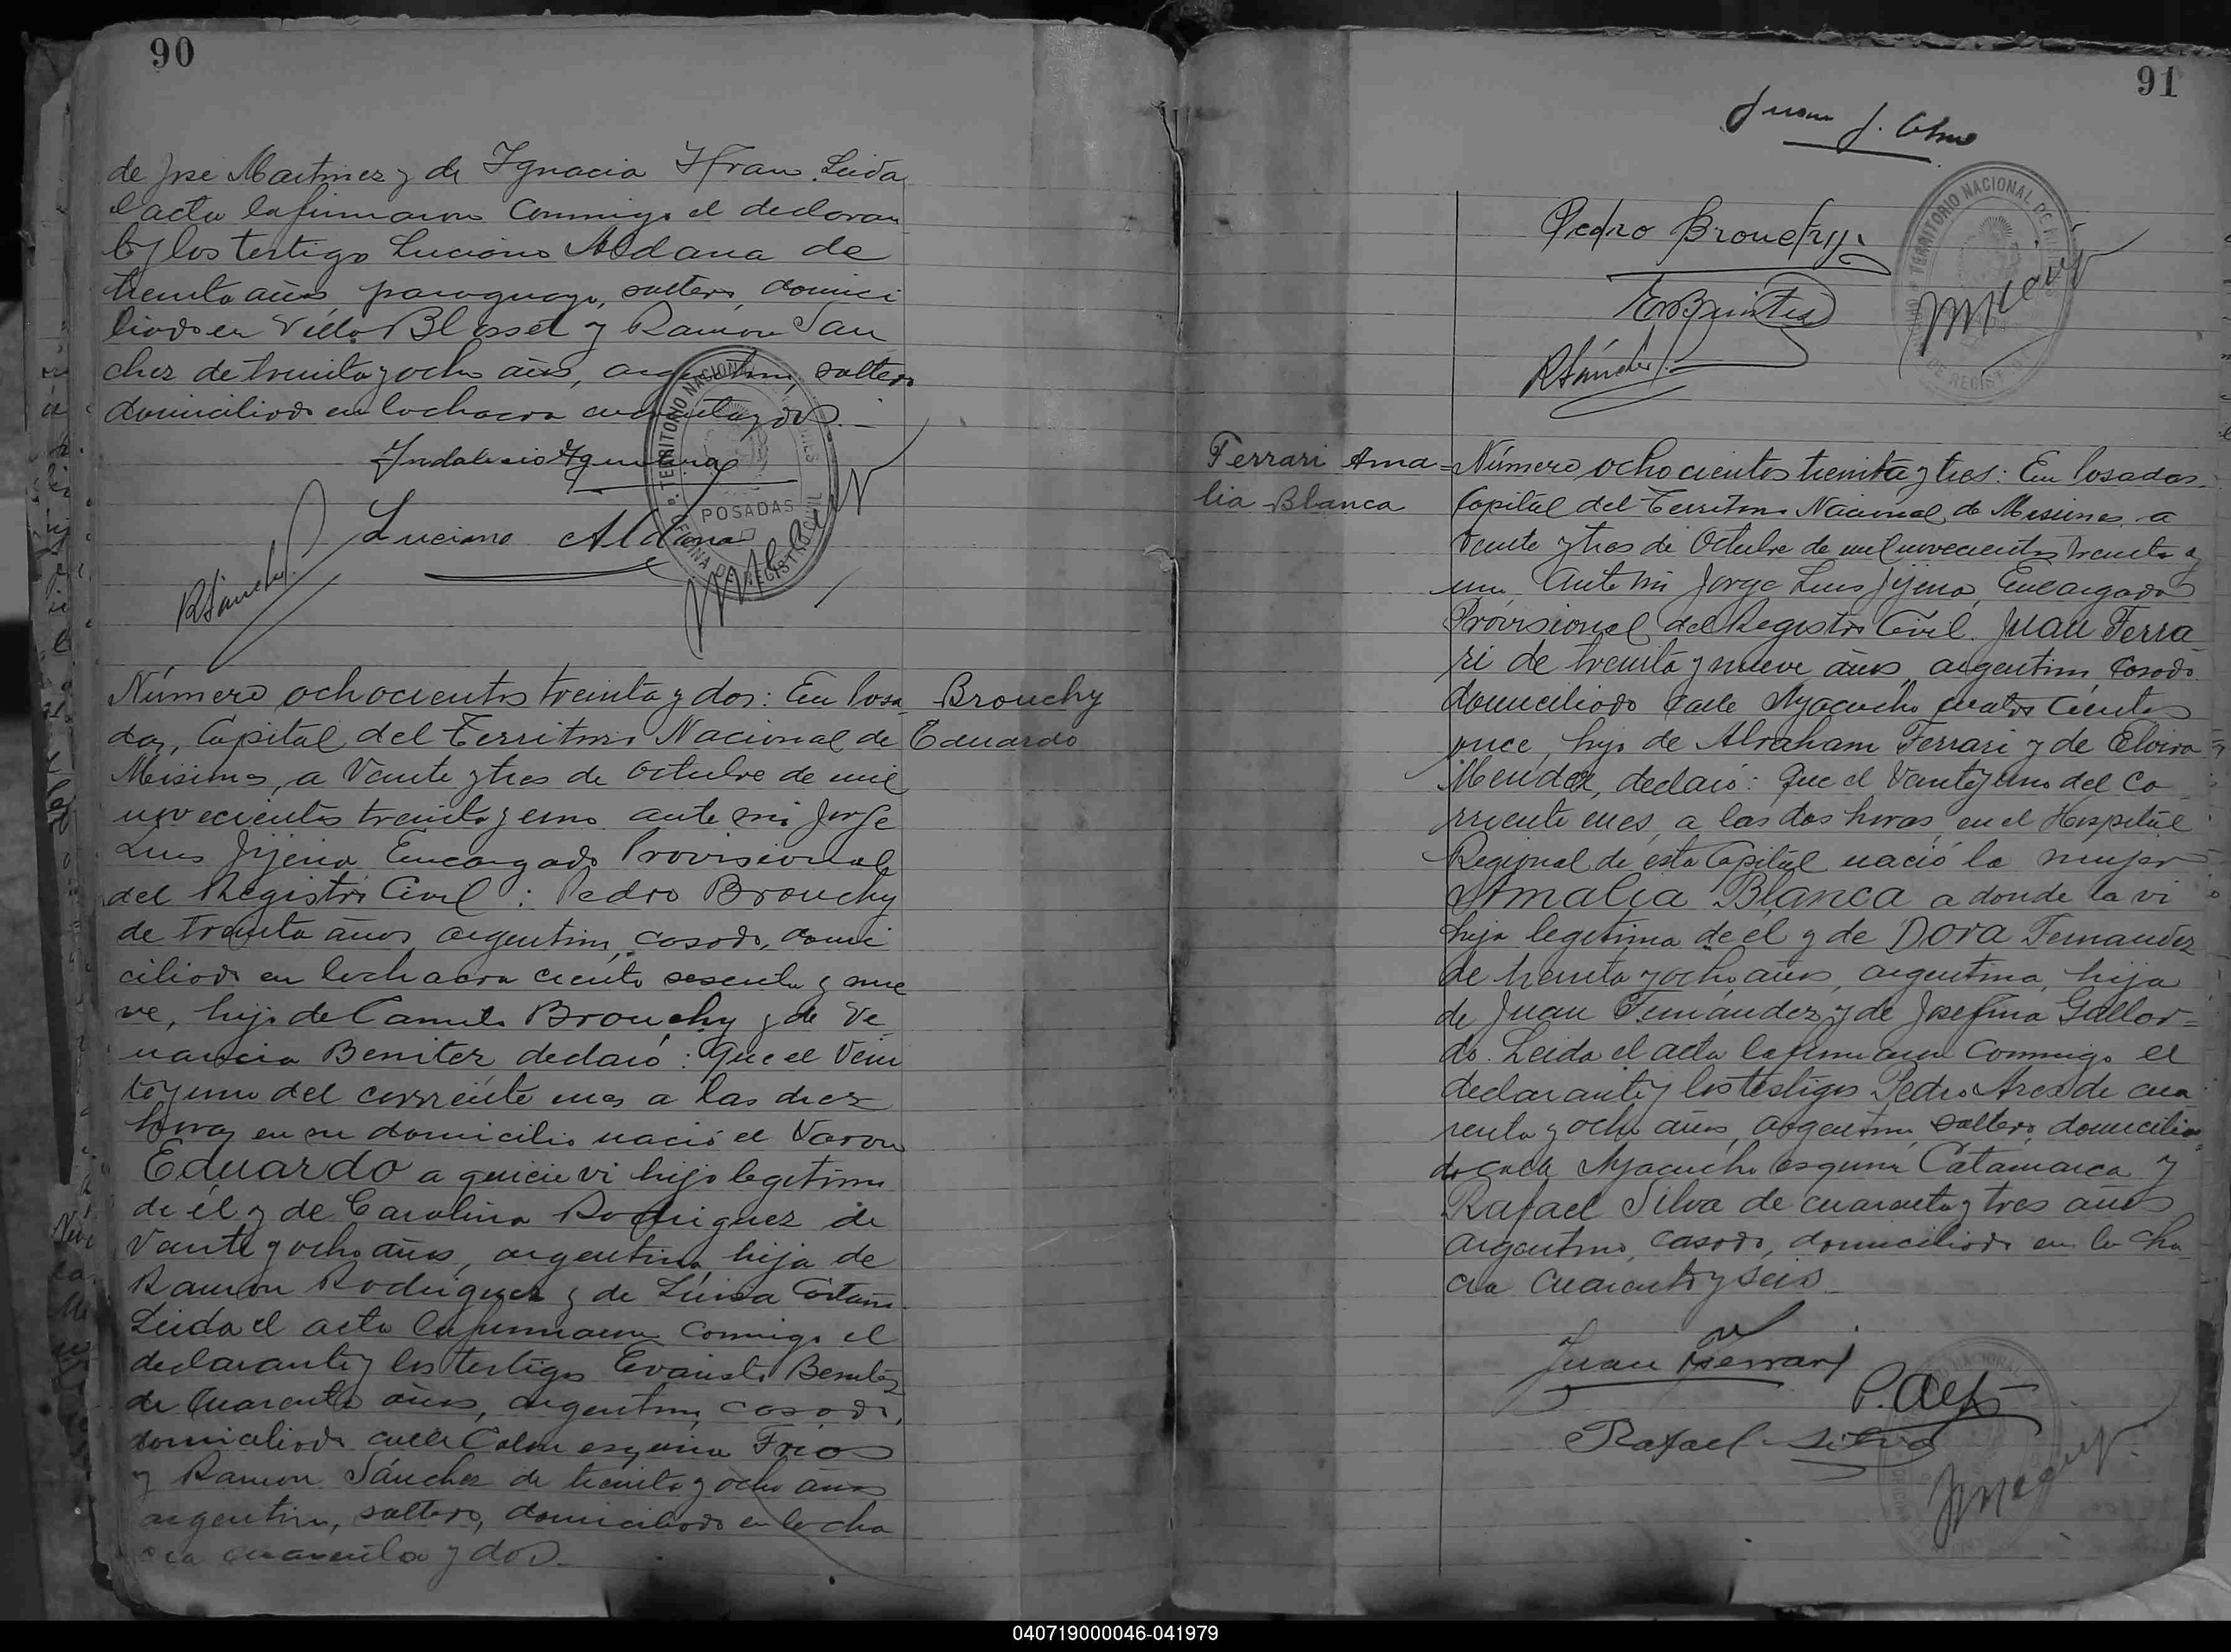 90
de Jose Martinez y de Ygnacia Leida
el acta la firmaron conmigo el declaran
te y los testigo Luciano Aldana de
treinta años paraguayo, soltero, domici
liado en Villa Blosset y Ramón San
chez de treinta y ocho años, argentino, soltero
domiciliado en la chacra cuarenta y dos.-
Indalecio
Luciano Aldana
RSánchez
TERRITORIO NACIONAL
POSADAS
OFICINA DE REGISTRO CIVIL
Número ochocientos treinta y dos: En Posa
das, Capital del Territorio Nacional de
Misiones, a veinte y tres de Octubre de mil
novecientos treinta y uno ante mi Jorge
Luis Jijena Encargado Provisional
del Registro Civil: Pedro Brouchy
de treinta años, argentino, casado, domi
ciliado en la chacra ciento sesenta y nue
ve, hijo de Camilo Brouchy y de Ve
nancia Benitez, declaró: Que el vein
te y uno del corriente mes a las diez
horas en su domicilio nació el varon
Eduardo a quien vi hijo legitimo
de él y de Carolina Rodriguez de
veinte y ocho años, argentina, hija de
Ramon Rodriguez y de Luisa
Leida el acta la firmaron conmigo el
declarante y los testigos Evaristo Benitez
de cuarenta años, argentino, casado,
domiciliado calle Colon esquina Frios
y Ramon Sánchez de treinta y ocho años
argentino, soltero, domiciliado en la cha
cra cuarenta y dos.-
Brouchy
Eduardo
91
Juan J.
Pedro Brouchy.
EBenitez
RSánchez
TERRITORIO NACIONAL DE
DE REGIST
Ferrari Ama=
lia Blanca
Número ochocientos treinta y tres: En Posadas
Capital del Territorio Nacional de Misiones a
veinte y tres de Octubre de mil novecientos treinta y
uno, ante mi Jorge Luis Jijena, Encargado
Provisional del Registro Civil. Juan Ferra
ri de treinta y nueve años, argentino casado
domiciliado calle Ayacucho cuatro cientos
once, hijo de Abraham Ferrari y de Elvira
Mendez, declaró: Que el veinte y uno del co
rriente mes, a las dos horas, en el Hospital
Regional de esta Capital nació la mujer
Amalia Blanca a donde la vi
hija legitima de él y de Dora Fernandez
de treinta y ocho años, argentina, hija
de Juan Fernández y de Josefina Gallar=
do. Leida el acta la firmaron conmigo el
declarante y los testigos Pedro Arce de cua
renta y ocho años, argentino, soltero, domicilia
do calle Ayacucho esquina Catamarca y
Rafael Silva de cuarenta y tres años
argentino, casado, domiciliado en la cha
cra cuarenta y seis.-
Juan Ferrari
Rafael Silva
040719000046-041979